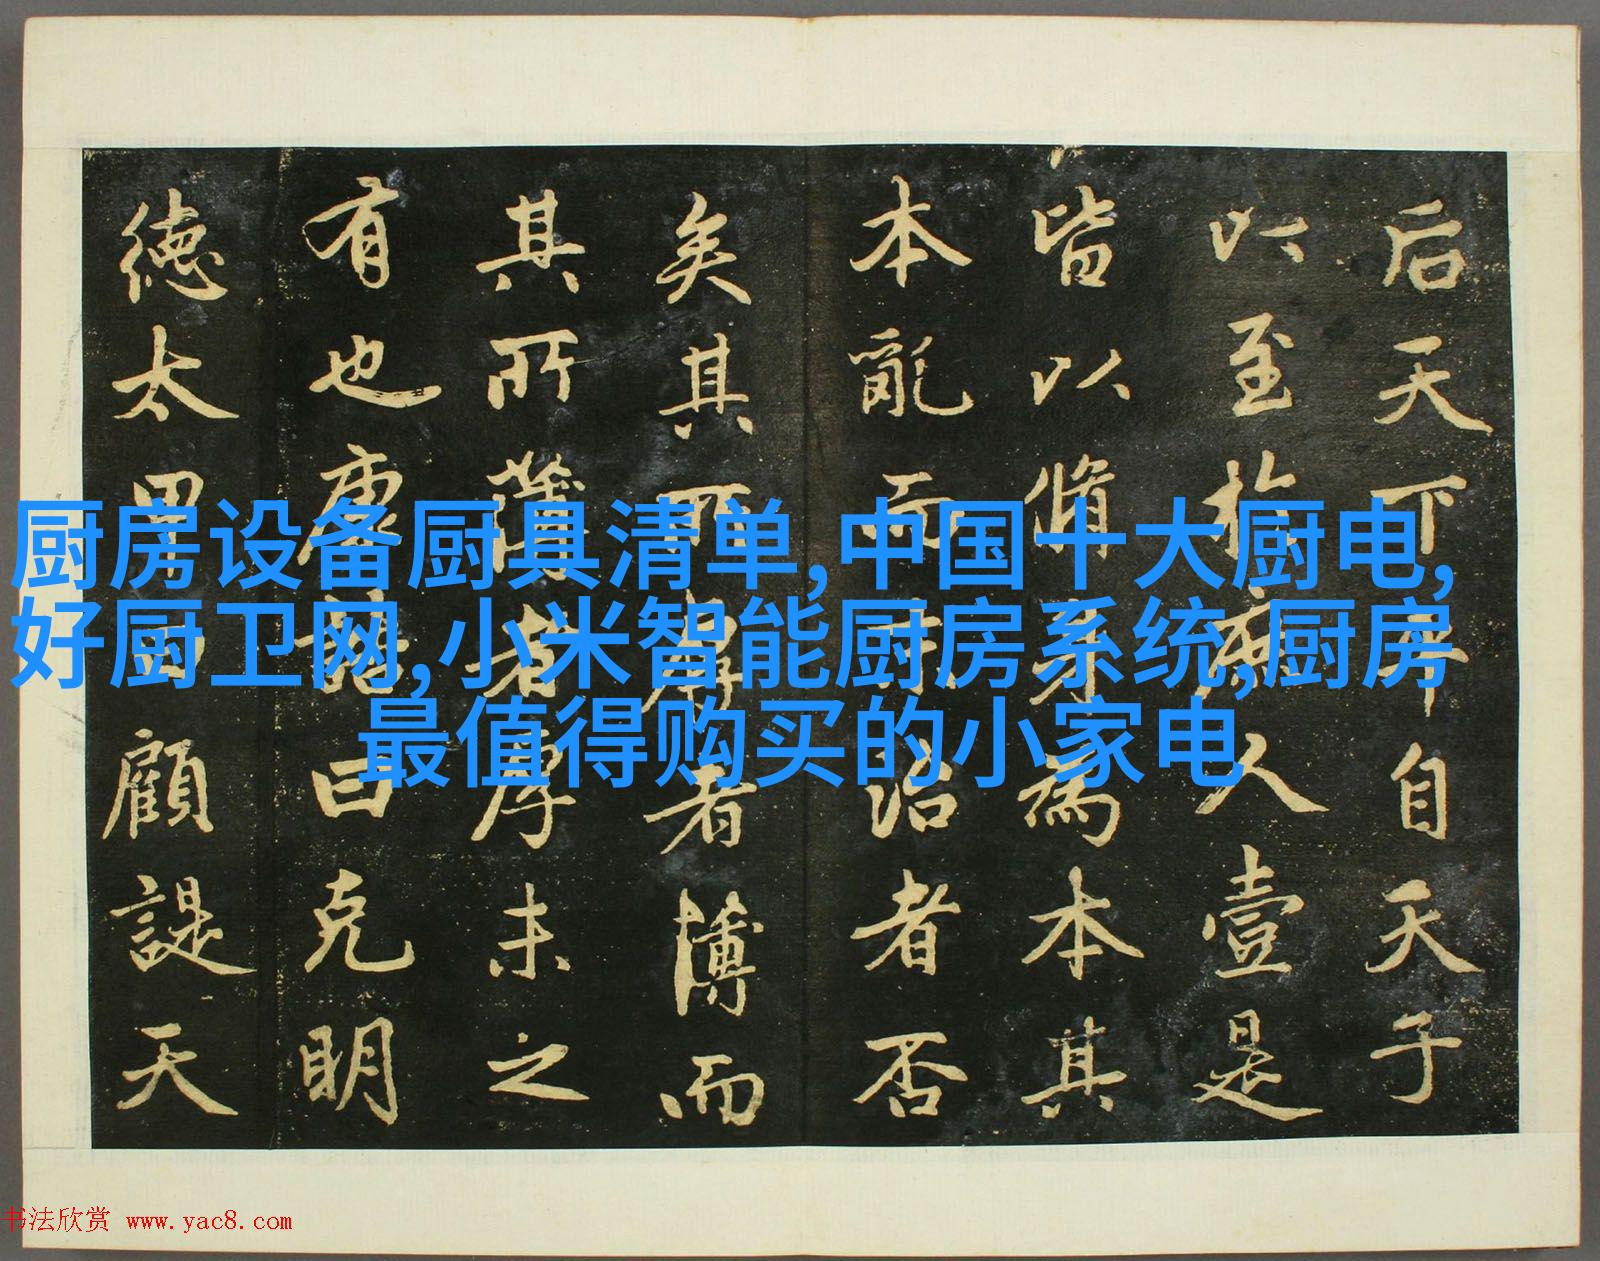 后天下平自天子
以至於庶人壹是
皆以脩身為本其
本亂而末治者否
矣其所厚者薄而
其所薄者厚未之
有也康誥曰克明
德太甲曰顧諟天
厨房设备厨具清单,中国十大厨电,
好厨卫网,小米智能厨房系统,厨房
最值得购买的小家电
书法欣赏 www.yac8.com